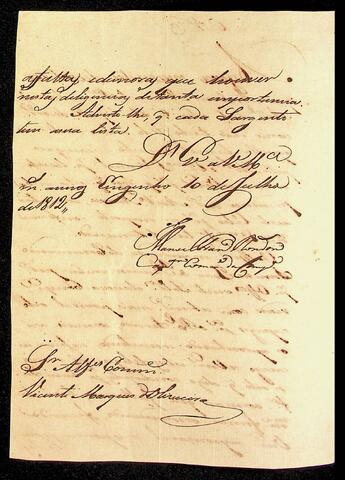 a falta, e demora que houver
nesta deligencia de tanta importancia.
Advirto lhe, q cada Sargento
tem sua lista.
Ds Ge a VMce
m. annos Engenho 10 de Julho
de 1812,,
Manoel Rondon
Cap.
Sr. Alfes Comme
Vicente Marques